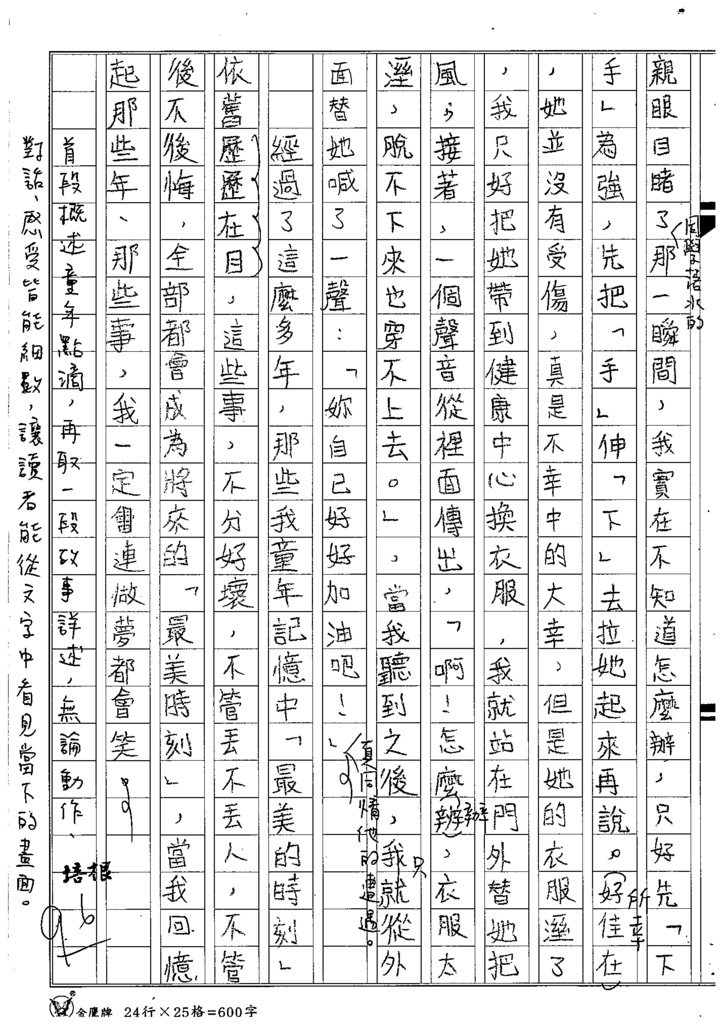 親眼目睹了那一瞬間，我實在不知道怎麼辦，只好先「下
同學落水的
手」為強，先把「手」伸「下」去拉她起來再說。好佳在
所幸
，她並沒有受傷，真是不幸中的大幸，但是她的衣服溼了
，我只好把她帶到健康中心換衣服，我就站在門外替她把
風，接著，一個聲音從裡面傳出，「啊！怎麼辨，衣服太
辦
溼，脫不下來也穿不上去。」，當我聽到之後，我就從外
只
面替她喊了一聲：「妳自己好好加油吧！」
真同情他的遭遇。
經過了這麼多年，那些我童年記憶中「最美的時刻」
依舊歷歷在目，這些事，不分好壞，不管丟不丟人，不管
後不後悔，全部都會成為將來的「最美時刻」，當我回憶
起那些年、那些事，我一定會連做夢都會笑。
首段概述童年點滴，再取一段故事詳述，無論動作、
對話、感受皆能細數，讓讀者能從文字中看見當下的畫面。
培根
金鷹牌 24行×25格=600字